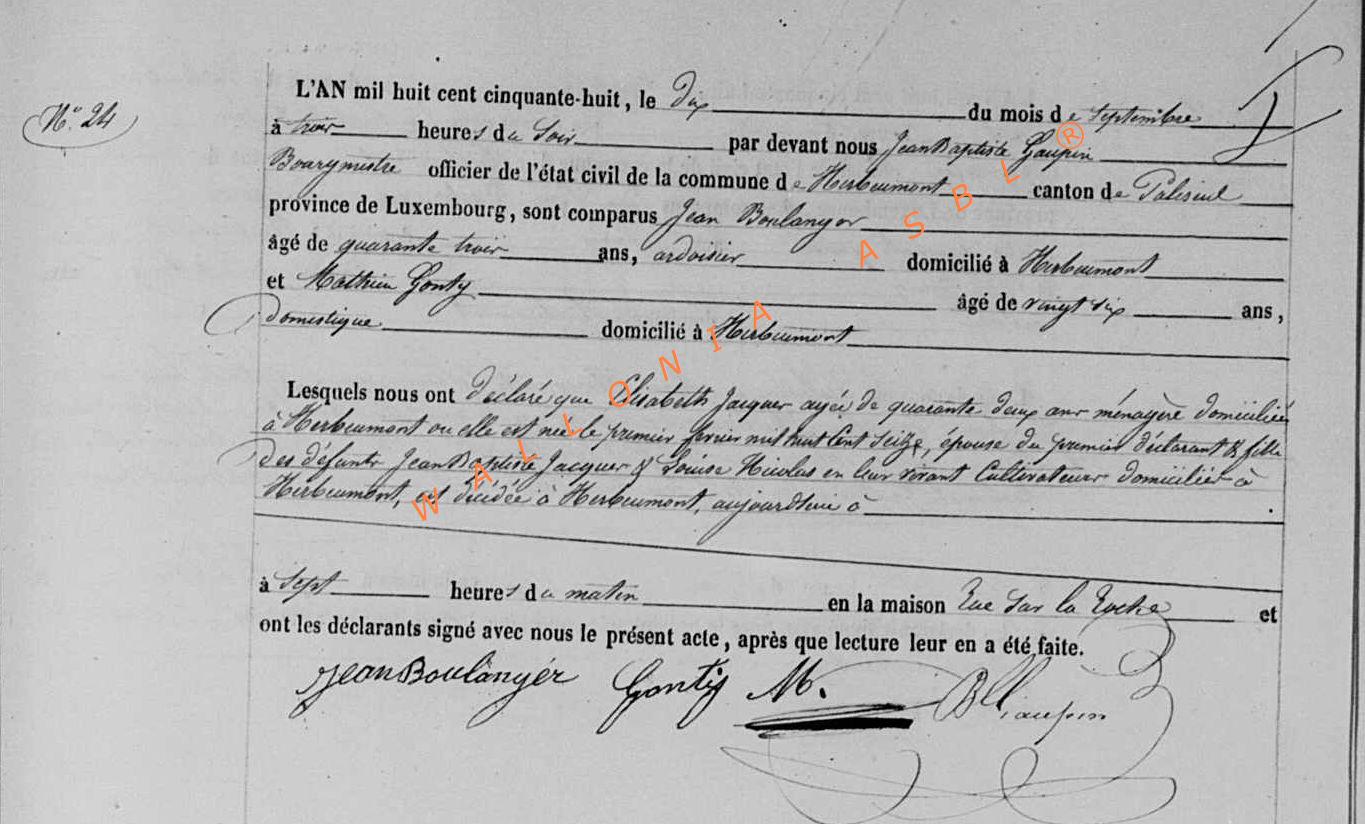 N.° 24
L'AN mil huit cent cinquante-huit, le dix du mois de Septembre
à trois heures du Soir par devant nous Jean Baptiste Gaupin
Bourgmestre officier de l'état civil de la commune de Herbeumont canton de Paliseul
province de Luxembourg, sont comparus Jean Boulanger
âgé de quarante trois ans, ardoisier domicilié à Herbeumont
et Mathieu Gonty âgé de vingt six ans,
domestique domicilié à Herbeumont
Lesquels nous ont déclaré que Elisabeth Jacques agée de quarante deux ans ménagère domiciliée
à Herbeumont ou elle est née le premier fevrier mil huit Cent Seize, épouse du premier déclarant & fille
des défunts Jean Baptiste Jacques & Louise Nicolas en leur vivant Cultivateurs domiciliés à
Herbeumont, est décédée à Herbeumont, aujourd'hui à
à Sept heures du matin en la maison Rue Sur la Roche et
ont les déclarants signé avec nous le présent acte, après que lecture leur en a été faite.
Jean Boulanger Gonty M. Gaupin
WALLONIA ASBL ®